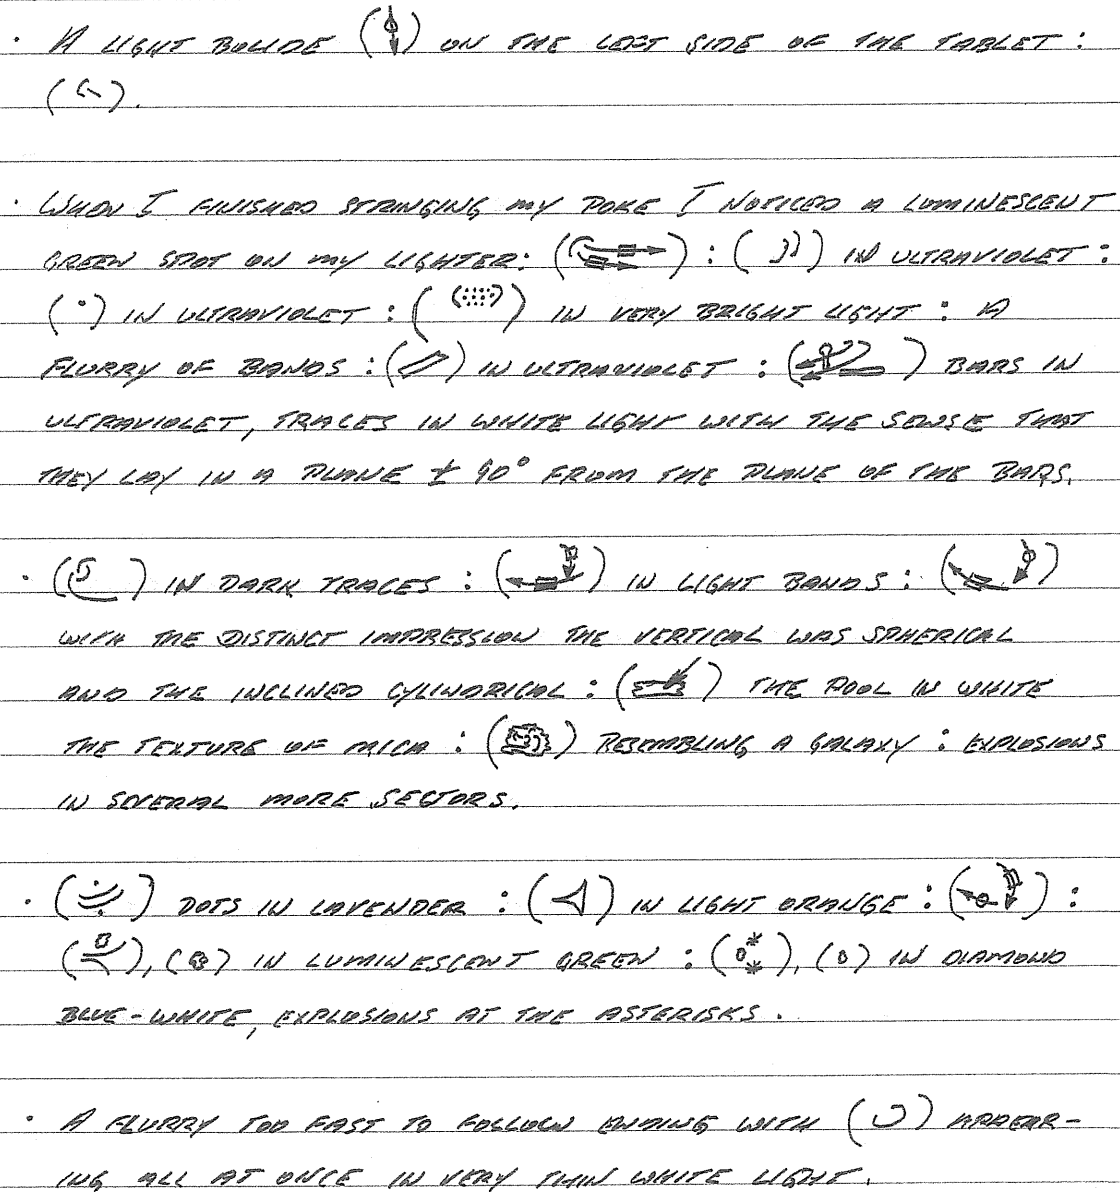 · A LIGHT BOLIDE ( ) ON THE LEFT SIDE OF THE TABLET :
( ).
· WHEN I FINISHED STRINGING MY POKE I NOTICED A LUMINESCENT
GREEN SPOT ON MY LIGHTER: ( ) : ( ) IN ULTRAVIOLET :
( ) IN ULTRAVIOLET : ( ) IN VERY BRIGHT LIGHT : A
FLURRY OF BANDS : ( ) IN ULTRAVIOLET : ( ) BARS IN
ULTRAVIOLET, TRACES IN WHITE LIGHT WITH THE SENSE THAT
THEY LAY IN A PLANE ± 90° FROM THE PLANE OF THE BARS.
· ( ) IN DARK TRACES : ( ) IN LIGHT BANDS : ( )
WITH THE DISTINCT IMPRESSION THE VERTICAL WAS SPHERICAL
AND THE INCLINED CYLINDRICAL : ( ) THE POOL IN WHITE
THE TEXTURE OF MICA : ( ) RESEMBLING A GALAXY : EXPLOSIONS
IN SEVERAL MORE SECTORS.
· ( ) DOTS IN LAVENDER : ( ) IN LIGHT ORANGE : ( ) :
( ), ( ) IN LUMINESCENT GREEN : ( ** ), ( ) IN DIAMOND
BLUE-WHITE, EXPLOSIONS AT THE ASTERISKS.
· A FLURRY TOO FAST TO FOLLOW ENDING WITH ( ) APPEAR-
ING ALL AT ONCE IN VERY THIN WHITE LIGHT.